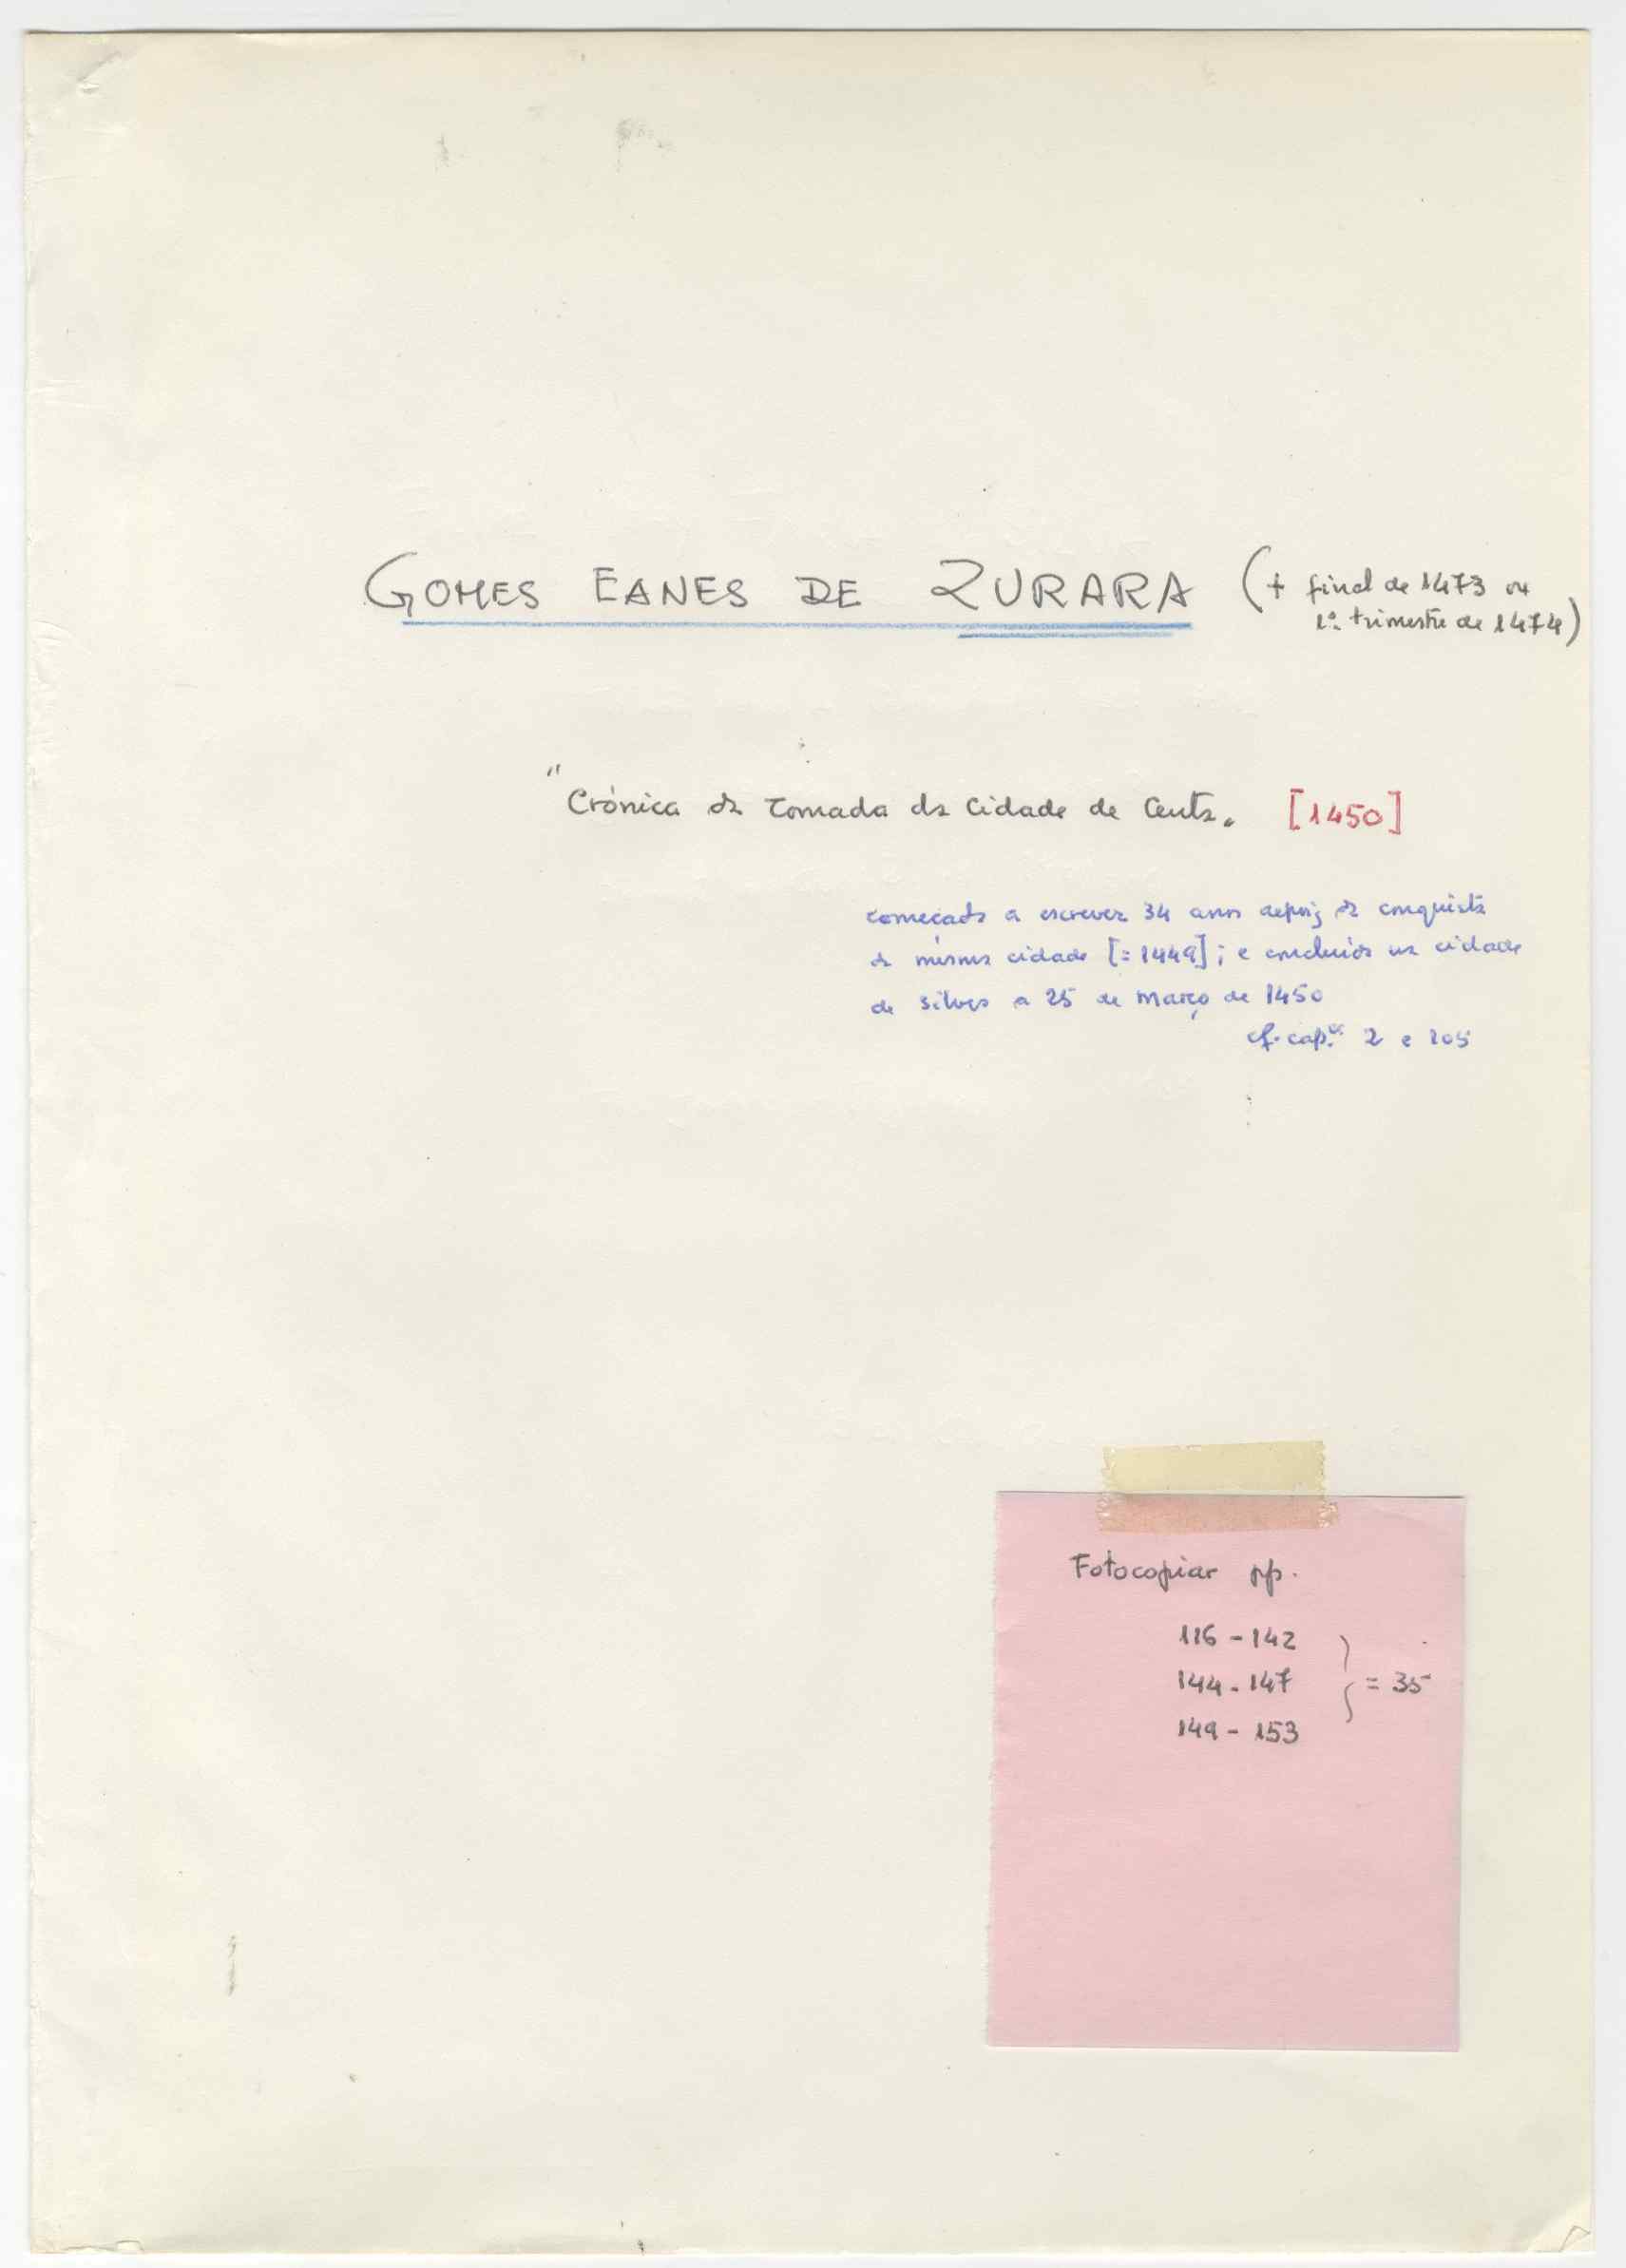 GOMES EANES DE ZURARA († final de 1473 ou
1º trimestre de 1474)
"Crónica da Tomada da Cidade de Ceuta" [1450]
começada a escrever 34 anos depois da conquista
da mesma cidade [=1449]; e concluida na cidade
de Silves a 25 de Março de 1450
cf. cap.os 2 e 105
Fotocopiar pp.
116-142
144-147 } = 35
149-153